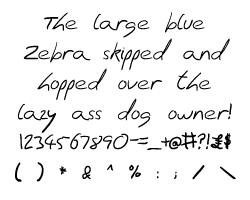 The large blue
Zebra skipped and
hopped over the
lazy ass dog owner!
1234567890-=_+@#?!£$
( ) * & ^ % : ; / \